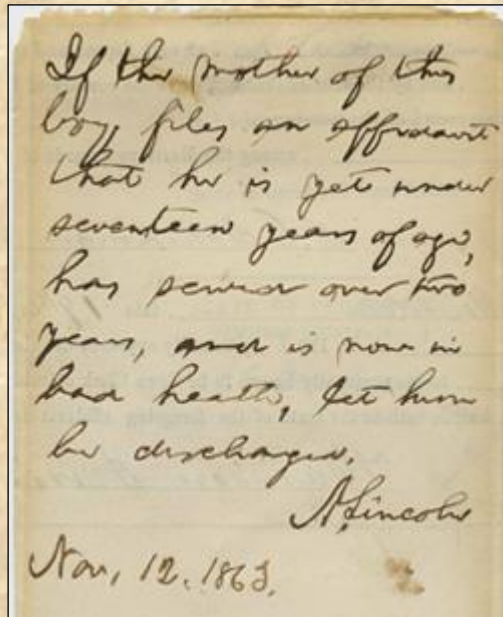 If the mother of this
boy, files an affidavit
that he is yet under
seventeen years of age,
has served over two
years, and is now in
bad health, let him
be discharged.
A. Lincoln
Nov, 12. 1863.